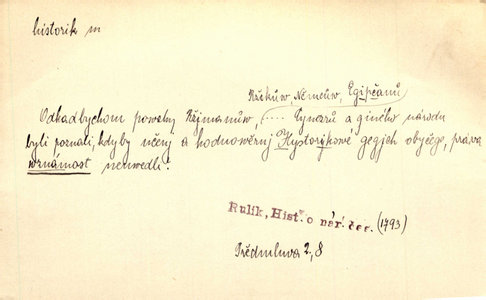 historik m
Řzekůw, Němcůw, Egipčanů
Odkadbychom powahy Ržjmanůw, .... a giného národu
byli poznali, kdyby učený a hodnowěrný Hystorykowé gegich obyčege, práwa
wznámost neuwedli?
Rulík, Hist. o nár. čes. (1793)
Předmluva 2, 8